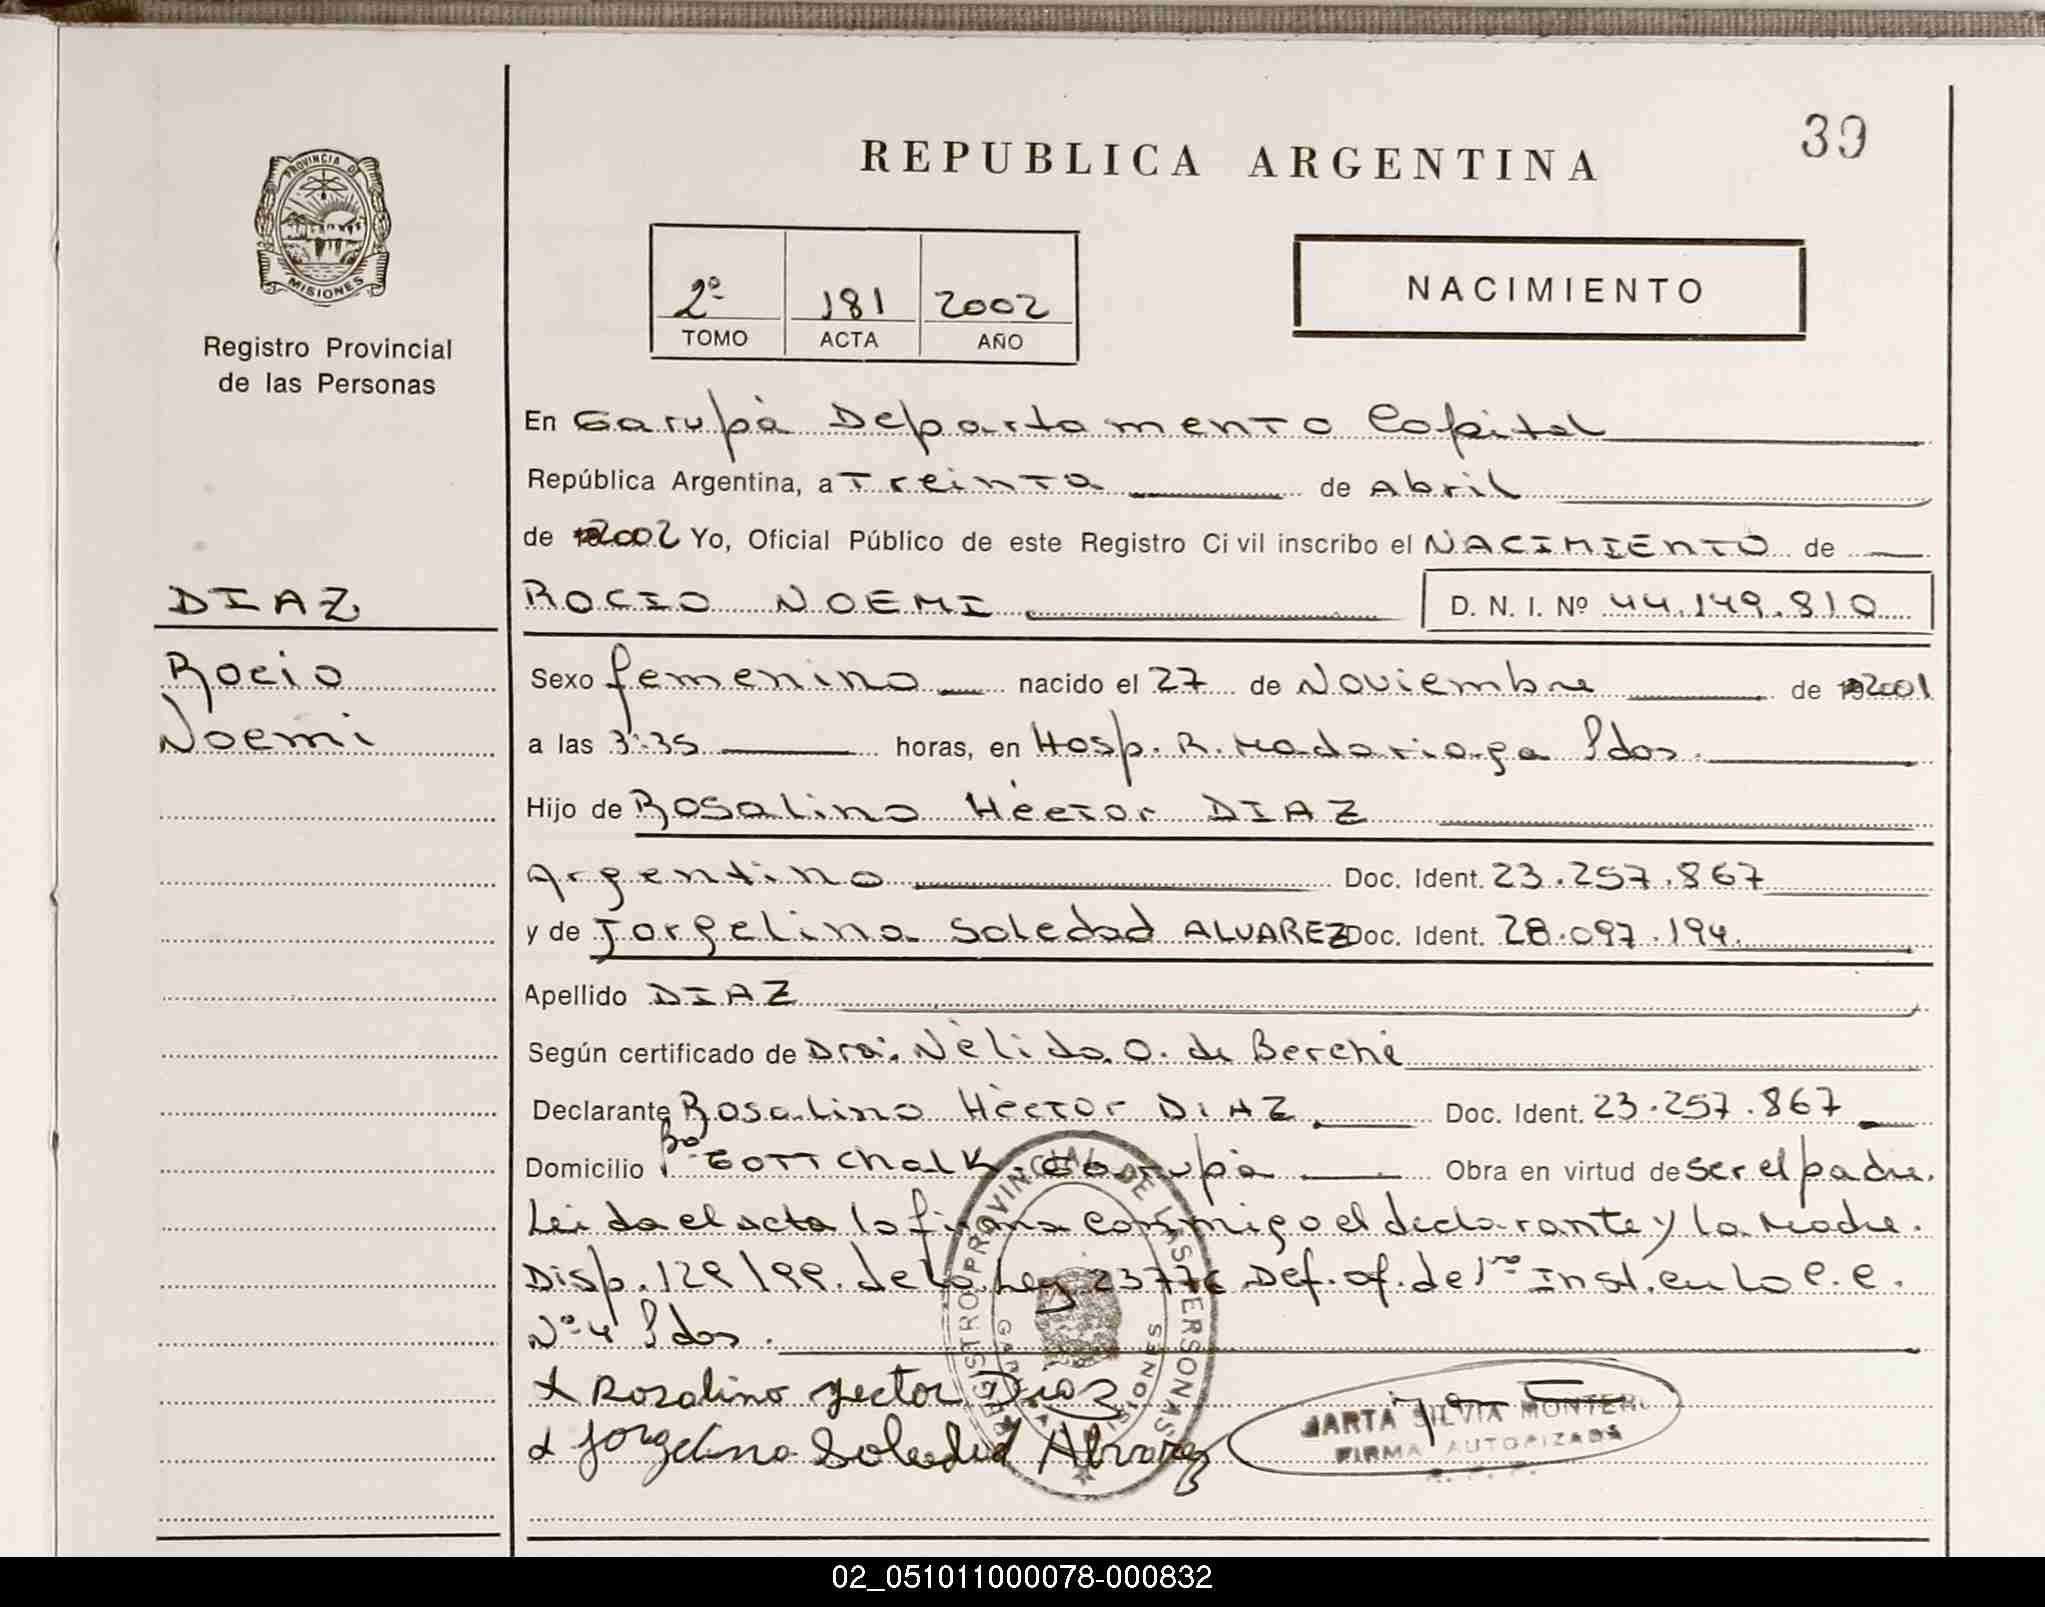 39
REPUBLICA ARGENTINA
PROVINCIA DE
MISIONES
Registro Provincial
de las Personas
2º 181 2002
TOMO ACTA AÑO
NACIMIENTO
En Garupà Departamento Capital
República Argentina, a Treinta de Abril
de 2002 Yo, Oficial Público de este Registro Civil inscribo el NACIMIENTO de
DIAZ
Rocio
Noemi
ROCIO NOEMI D. N. I. Nº 44.149.810
Sexo femenino nacido el 27 de Noviembre de 2001
a las 3:35 horas, en Hosp. R. Madariaga Pdas.
Hijo de Rosalino Hèctor DIAZ
Argentino Doc. Ident. 23.257.867
y de Jorgelina Soledad ALVAREZ Doc. Ident. 28.097.194.
Apellido DIAZ
Según certificado de Dra. Nèlida O. de Berchè
Declarante Rosalino Hèctor DIAZ Doc. Ident. 23.257.867
Domicilio Bº Gottchalk. Garupà Obra en virtud de ser el padre.
Leida el acta la firma conmigo el declarante y la Madre.
Disp. 129/99. de la Ley 23776 Def. of. de 1ra Inst. en lo C. C.
Nº 4 Pdas.
x Rosalino Hector Diaz
x Jorgelina Soledad Alvarez
REGISTRO PROVINCIAL DE LAS PERSONAS
MISIONES
MARTA SILVIA MONTERO
FIRMA AUTORIZADA
02_051011000078-000832